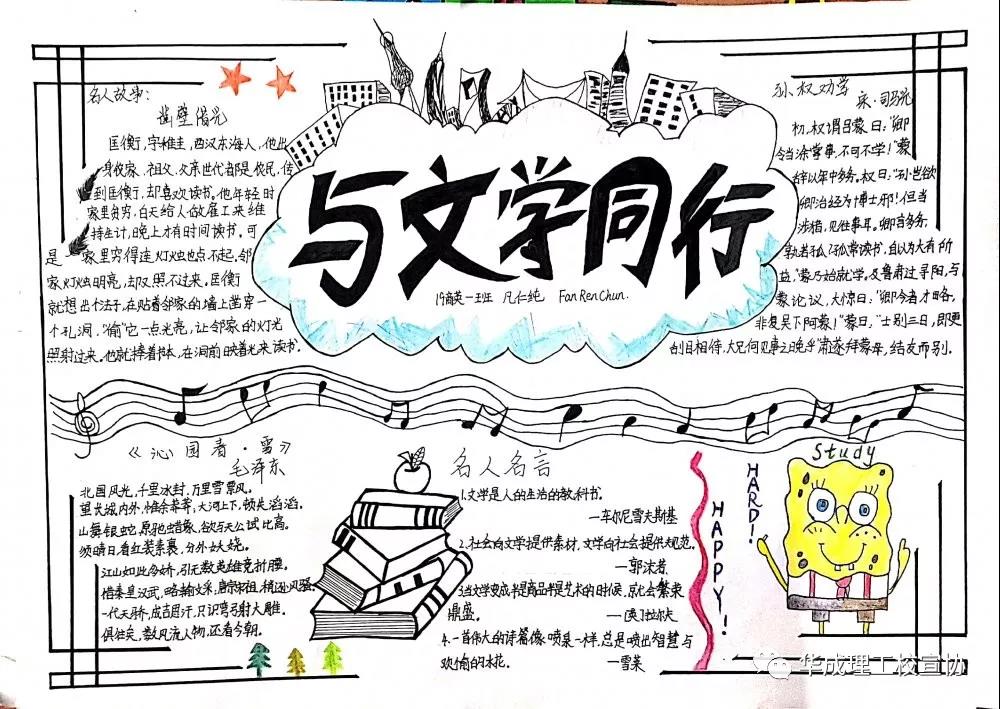 名人故事：
凿壁偷光
匡衡，字稚圭，西汉东海人，他出
身农家，祖父、父亲世代都是农民，传
到匡衡，却喜欢读书。他年轻时
家里贫穷，白天给人做雇工来维
持生计，晚上才有时间读书。可
是家里穷得连灯烛也点不起，邻
家灯烛明亮，却又照不过来。匡衡
就想出个法子，在贴着邻家的墙上凿穿一
个孔洞，“偷”它一点光亮，让邻家的灯光
照射过来。他就捧着书本，在洞前映着光来读书。
与文学同行
19商英一班 凡仁纯 Fan Ren Chun.
孙权劝学
宋·司马光
初，权谓吕蒙曰：“卿
今当涂掌事，不可不学！”蒙
辞以军中多务。权曰：“孤岂欲
卿治经为博士邪！但当
涉猎，见往事耳。卿言多务，
孰若孤？孤常读书，自以为大有所
益。”蒙乃始就学。及鲁肃过寻阳，与
蒙论议，大惊曰：“卿今者才略，
非复吴下阿蒙！”蒙曰，“士别三日，即更
刮目相待，大兄何见事之晚乎”肃遂拜蒙母，结友而别。
《沁园春·雪》
毛泽东
北国风光，千里冰封，万里雪飘。
望长城内外，惟余莽莽；大河上下，顿失滔滔。
山舞银蛇，原驰蜡象，欲与天公试比高。
须晴日，看红装素裹，分外妖娆。
江山如此多娇，引无数英雄竞折腰。
惜秦皇汉武，略输文采，唐宗宋祖，稍逊风骚。
一代天骄，成吉思汗，只识弯弓射大雕。
俱往矣，数风流人物，还看今朝。
名人名言
1.文学是人的生活的教科书。
—车尔尼雪夫斯基
2.社会向文学提供素材，文学向社会提供规范。
—郭沫若
3.当文学变成半是商品半是艺术的时候，就会繁荣
鼎盛。
—[英]拉尔夫
4.一首伟大的诗篇像一喷泉一样，总是喷出智慧与
欢愉的水花。
—雪莱
HAPPY!
HARD!
Study
华成理工校宣协